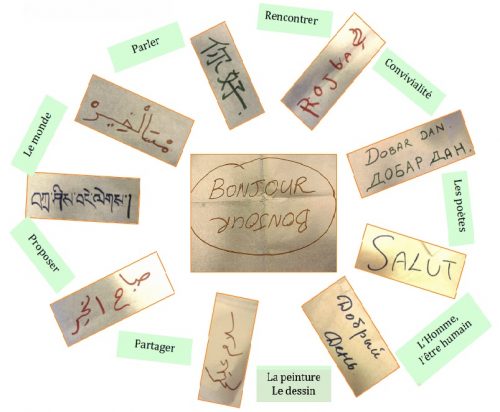 Rencontrer
Parler
你好.
Rojbaş
Convivialité
Le monde
DOBAR DAN.
ДОБАР ДАН.
BONJOUR
BONJOUR
བཀྲ་ཤིས་བདེ་ལེགས།
Les poètes
Proposer
SALUT
صباح الخير
Добрый
День
L'Homme,
l'être humain
Partager
La peinture
Le dessin